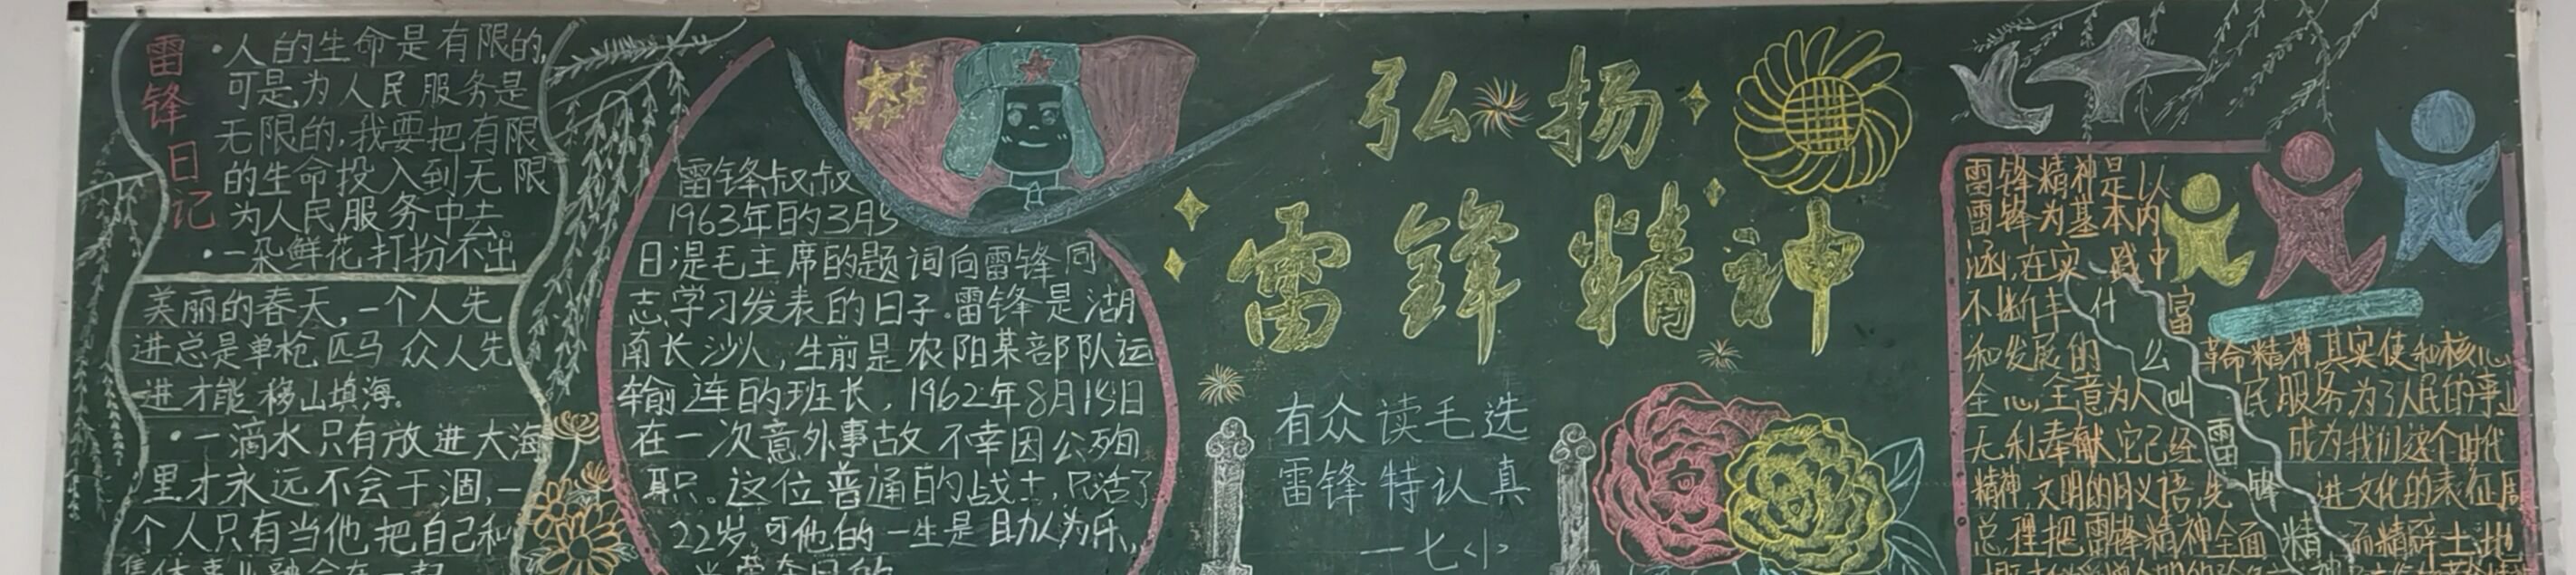 雷锋日记
·人的生命是有限的,
可是为人民服务是
无限的,我要把有限
的生命投入到无限
为人民服务中去。
·一朵鲜花打扮不出
美丽的春天,一个人先
进总是单枪匹马 众人先
进才能移山填海。
·一滴水只有放进大海
里才永远不会干涸,一
个人只有当他把自己和
雷锋叔叔
1963年的3月5
日是毛主席的题词向雷锋同
志学习发表的日子.雷锋是湖
南长沙人,生前是农阳某部队运
输连的班长,1962年8月15日
在一次意外事故不幸因公殉
职。这位普通的战士,只活了
22岁,可他的一生是助人为乐,
弘扬
雷锋精神
有众读毛选
雷锋特认真
一七小
雷锋精神是以
雷锋为基本内
涵,在实践中
不断丰富
和发展的革命精神其实使和核心
全心全意为人民服务为了人民的事业
无私奉献,它已经成为我们这个时代
精神文明的同义语,先进文化的表征周
总理把雷锋精神全面而精辟土地
什么叫雷锋精